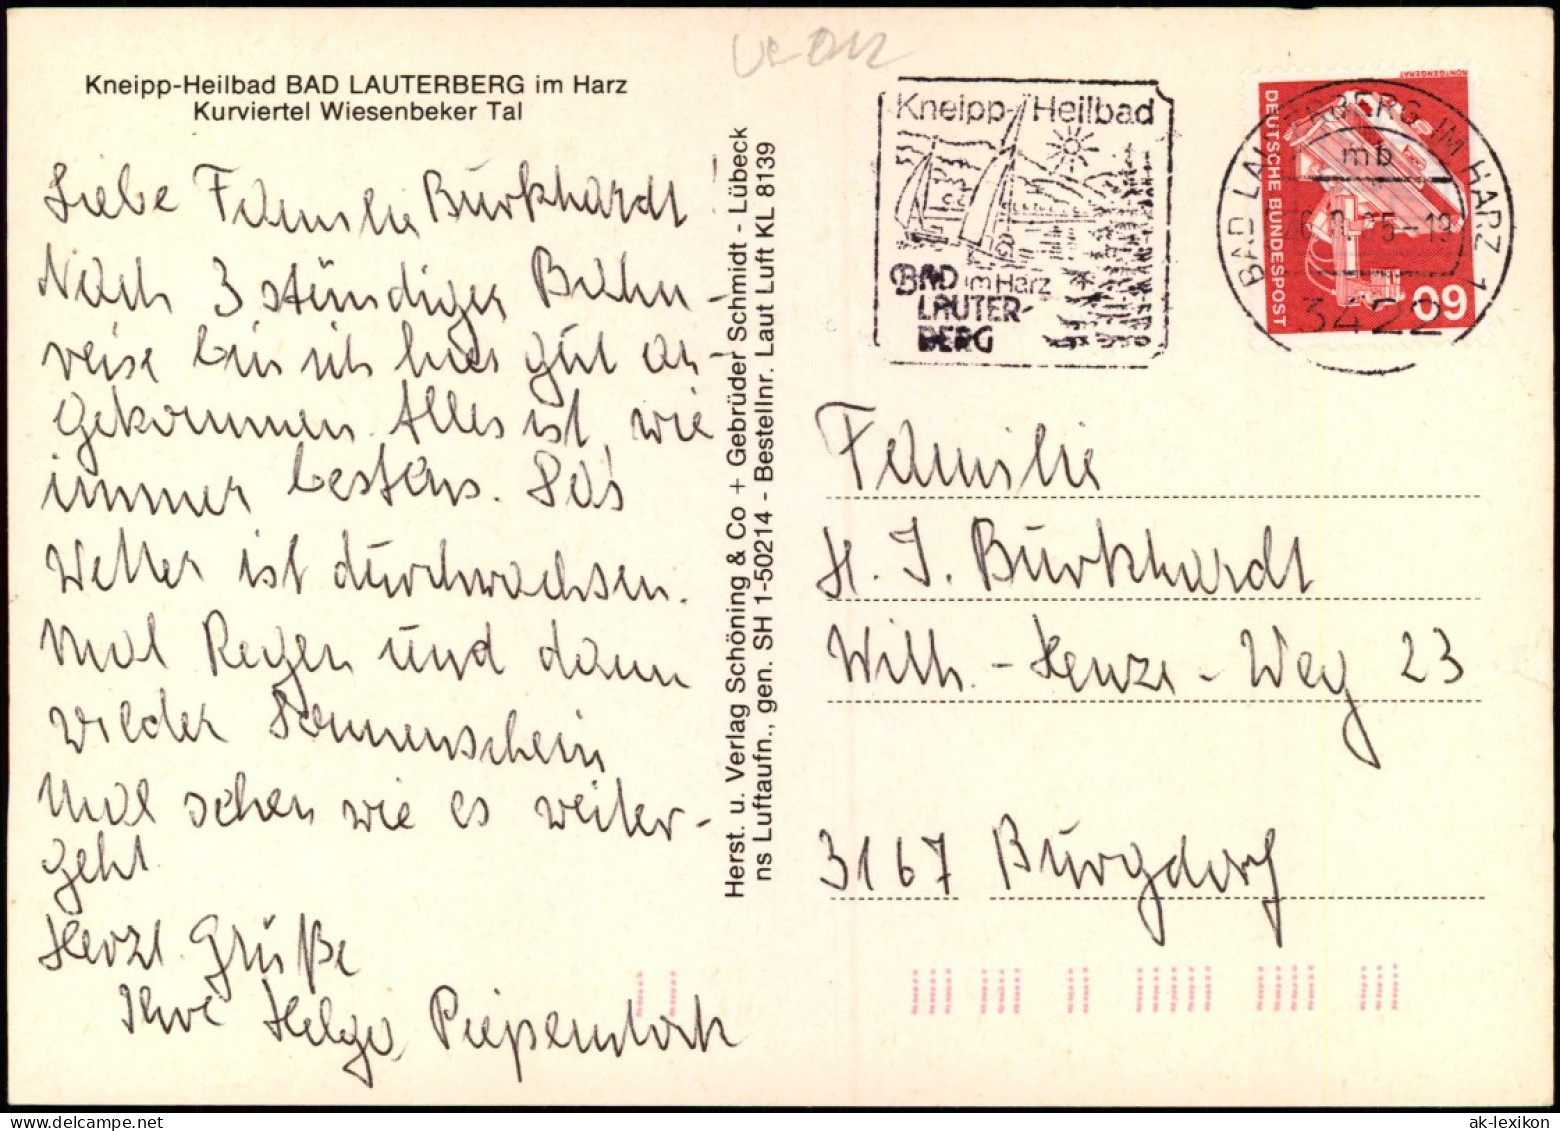 Kneipp-Heilbad BAD LAUTERBERG im Harz
Kurviertel Wiesenbeker Tal
Liebe Familie Burkhardt!
Nach 3 stündiger Bahn-
reise bin ich hier gut an-
gekommen. Alles ist wie
immer bestens. Das
Wetter ist durchwachsen.
Mal Regen und dann
wieder Sonnenschein
Mal sehen wie es weiter-
geht.
Herzl. Grüße
Ihre Helga
Herst. u. Verlag Schöning & Co + Gebrüder Schmidt - Lübeck
ns Luftaufn., gen. SH 1-50214 - Bestellnr. Laut Luft KL 8139
Kneipp-Heilbad
BAD im Harz
LAUTER-
BERG
BAD LAUTERBERG IM HARZ 1
mb
3422
RÖNTGENGERÄT
DEUTSCHE BUNDESPOST
60
Familie
H. J. Burkhardt
Wilh.-Henze-Weg 23
3167 Burgdorf
ak-lexikon